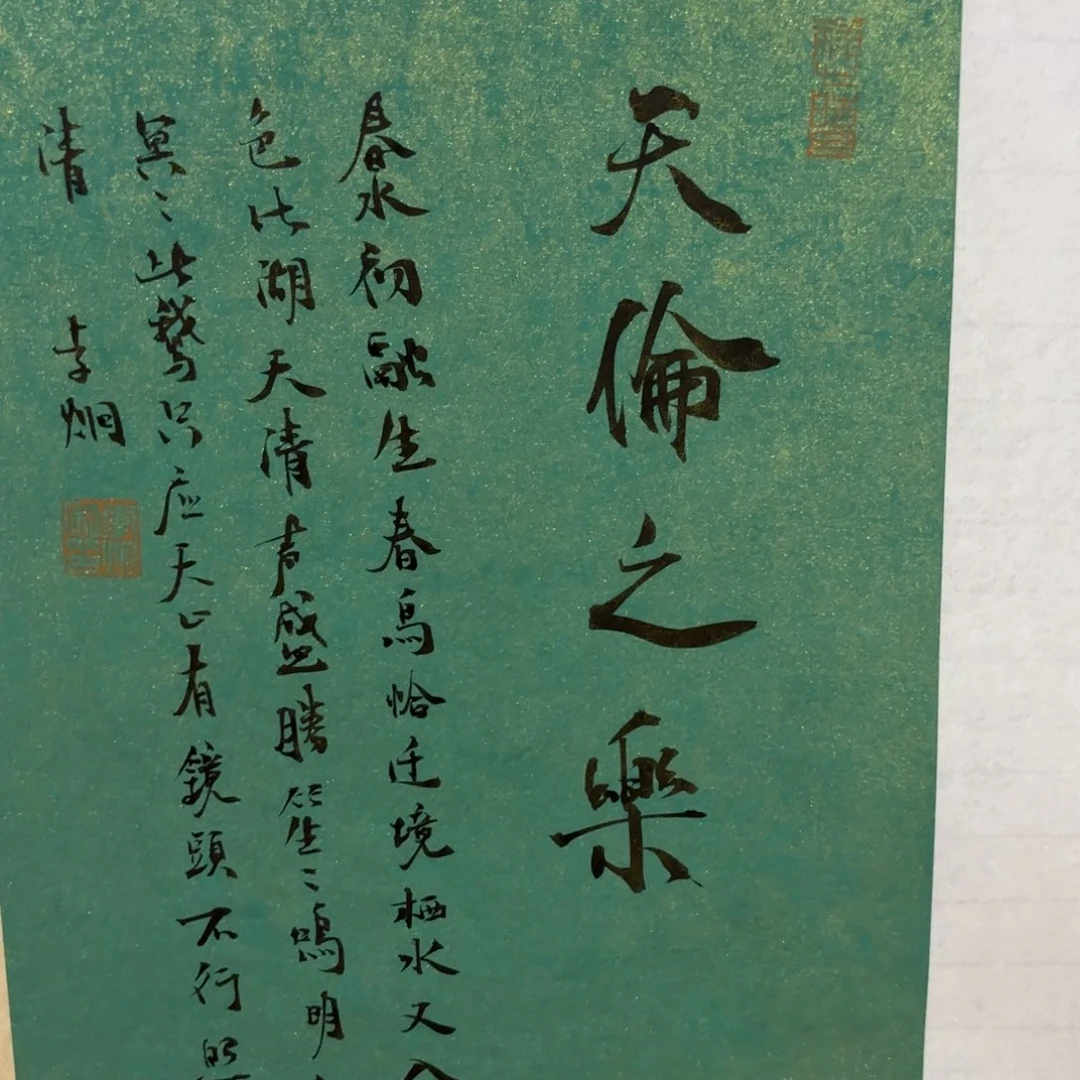 天倫之樂
春水初融生春鳥恰迁境栖水又
色比湖天清声盛勝笙〻鳴明
冥〻此鵞只应天上有鏡頭不行
清
李炯